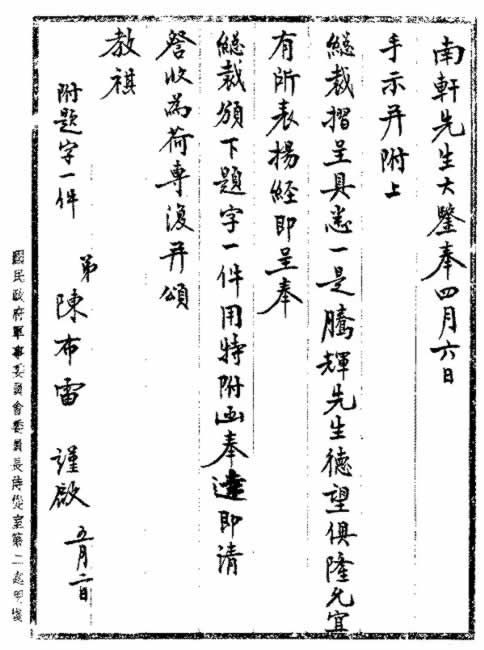 南軒先生大鑒奉四月六日
手示并附上
總裁摺呈具悉一是騰輝先生德望俱隆允宜
有所表揚經即呈奉
總裁頒下題字一件用特附函奉達即請
詧收為荷專復并頌
教祺
附題字一件
弟 陳布雷 謹啟 五月二日
國民政府軍事委員會委員長侍從室第二處用箋